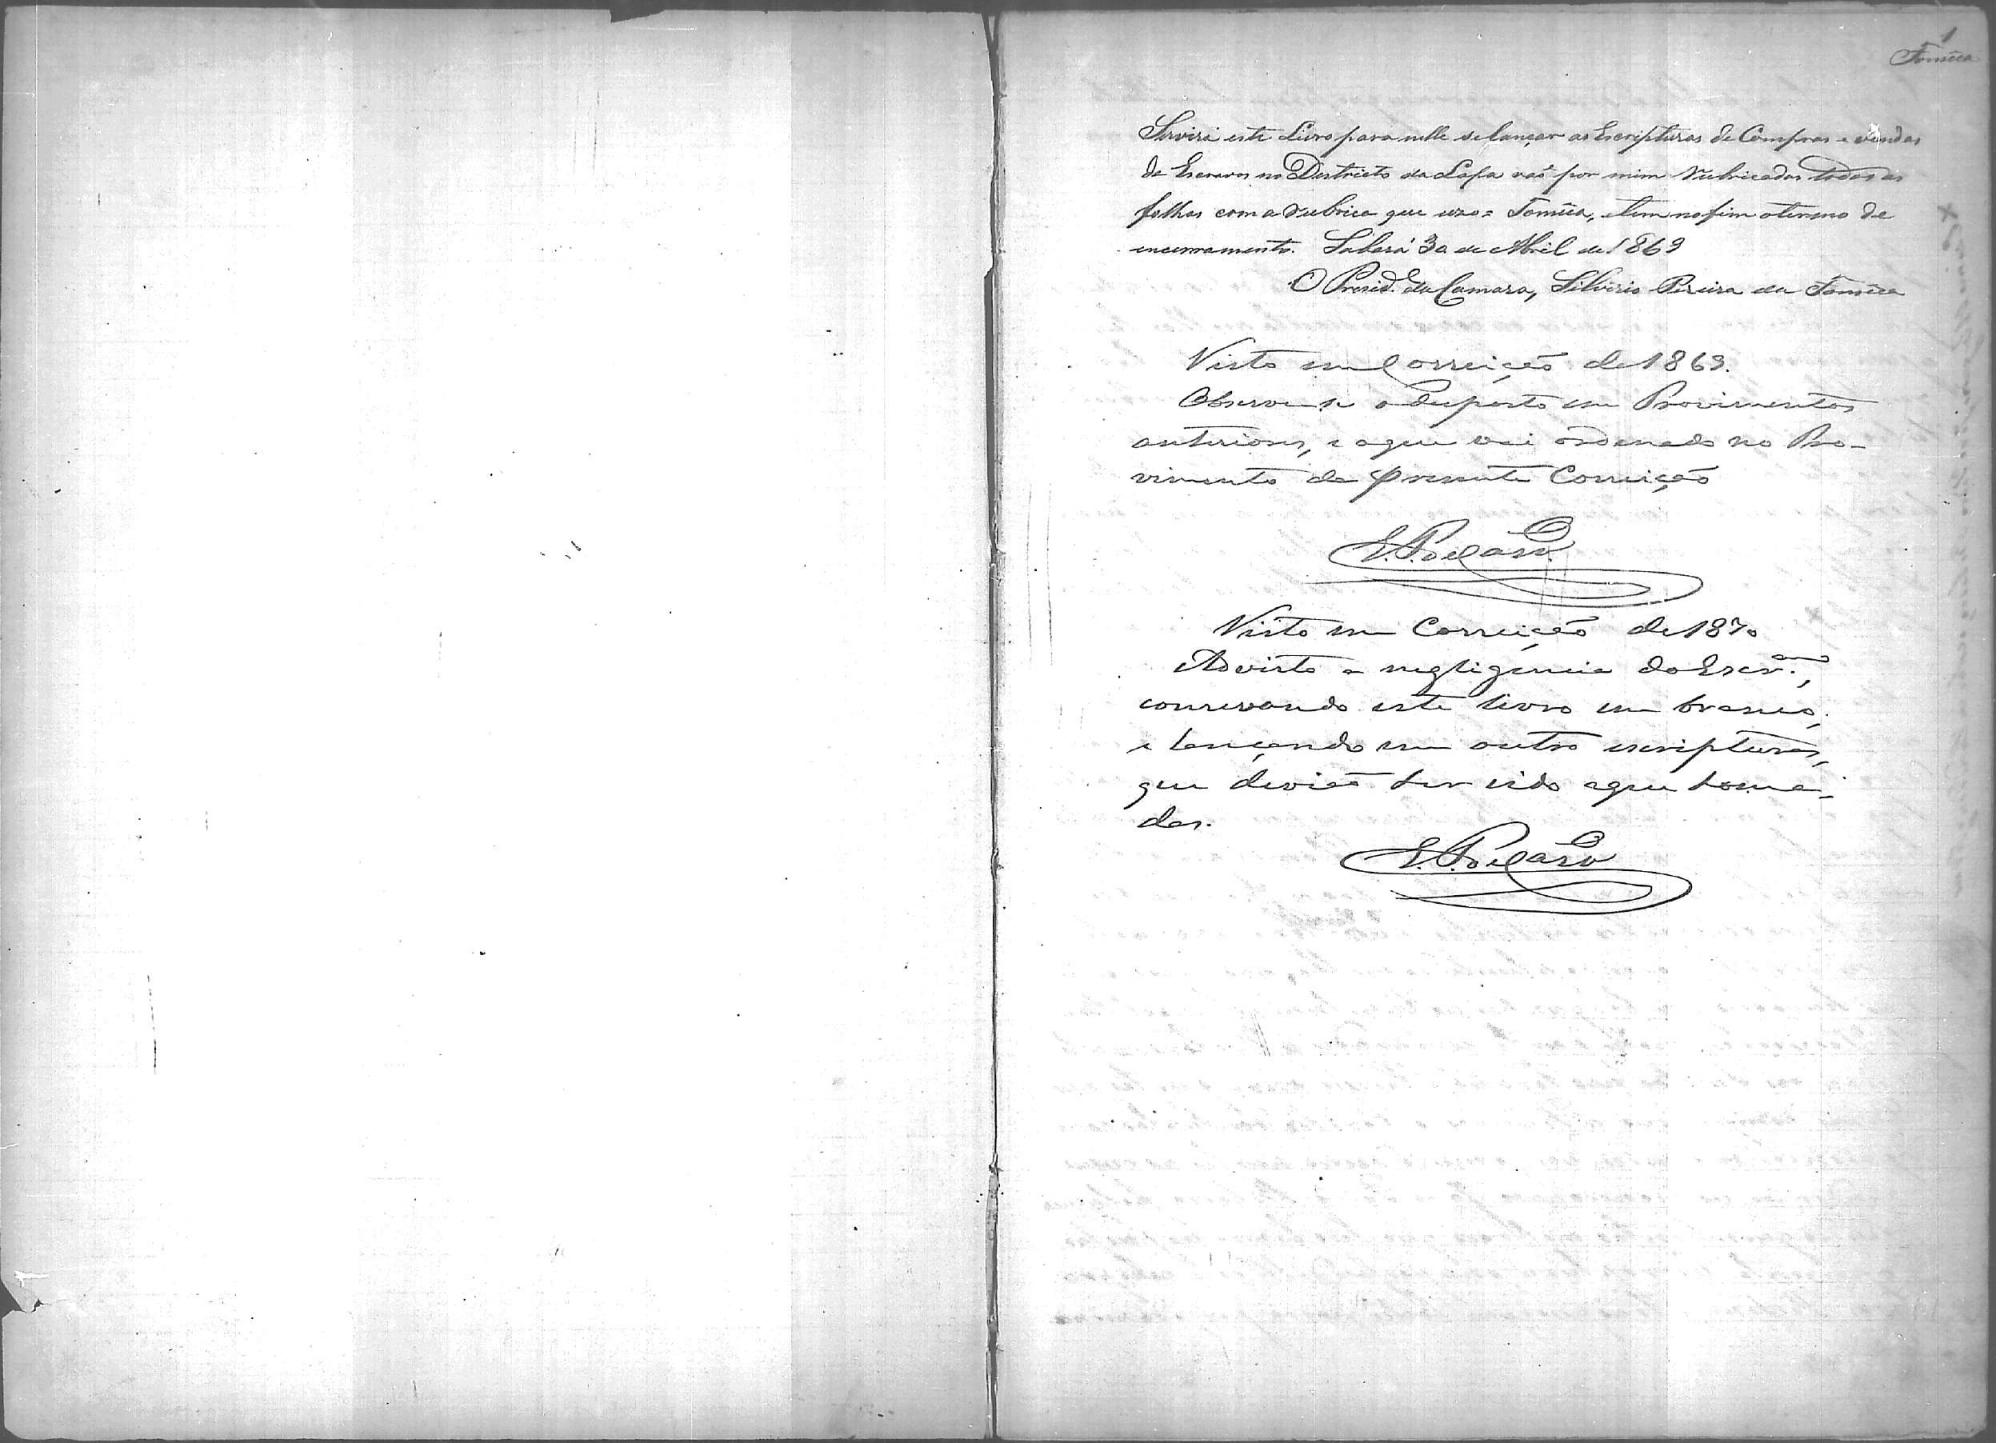 1
Fonseca
Servirá este Livro para nelle se lançar as Escripturas de Compras e vendas
de Escravos no Districto da Lapa vaõ por mim Rubricadas todas as
folhas com a rubrica que uzo = Fonseca, e tem no fim o termo de
encerramento. Sabará 30 de Abril de 1869
O Presid.e da Camara, Silverio Pereira da Fonseca
Visto em Correição de 1869.
Observe-se o disposto em Provimentos
anteriores, e o que vai ordenado no Pro-
vimento da presente Correição
Visto em Correição de 1870
Advirto a negligencia do Escr.am,
conservando este livro em branco,
e lançando em outro escripturas,
que devião ter sido aqui toma-
das.